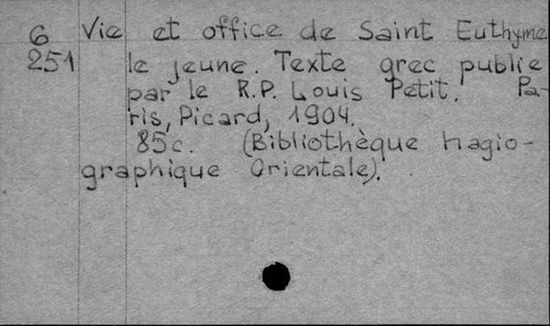 6 Vie et office de Saint Euthyme
251 le jeune. Texte grec publié
par le R.P. Louis Petit. Pa-
ris, Picard, 1904.
85c. (Bibliothèque hagio-
graphique Orientale).